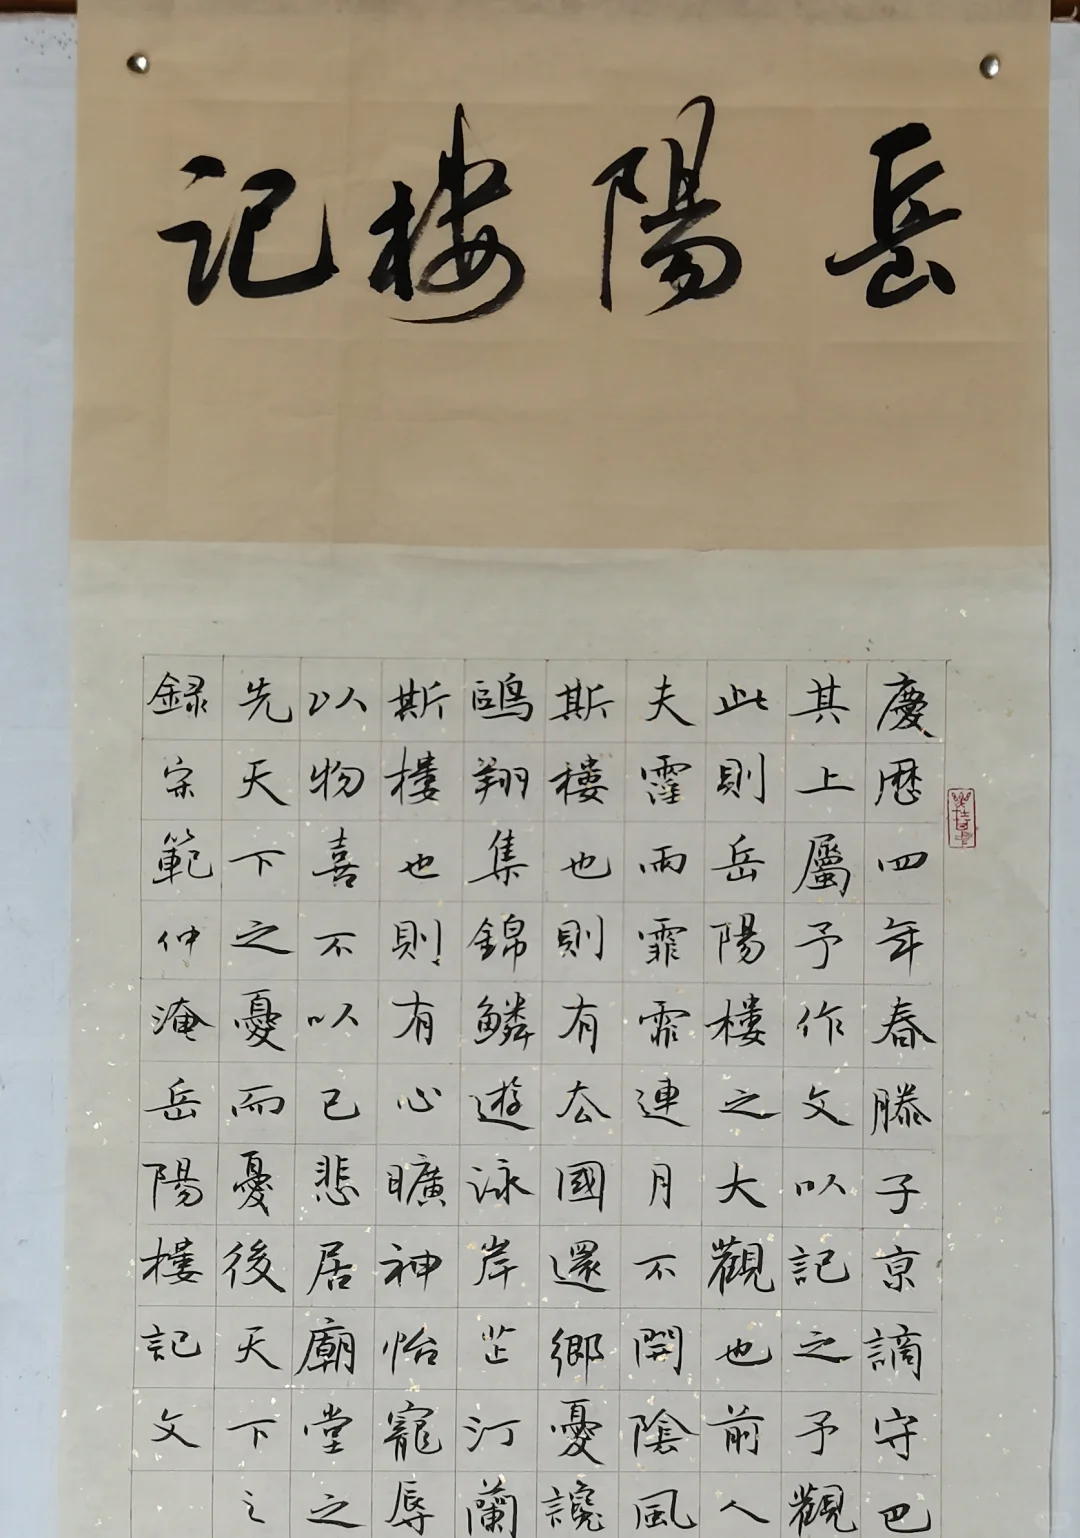 岳陽樓記
慶歷四年春滕子京謫守巴
其上屬予作文以記之予觀
此則岳陽樓之大觀也前人
夫霪雨霏霏連月不開陰風
斯樓也則有去國還鄉憂讒
鷗翔集錦鱗遊泳岸芷汀蘭
斯樓也則有心曠神怡寵辱
以物喜不以己悲居廟堂之
先天下之憂而憂後天下之
録宋範仲淹岳陽樓記文